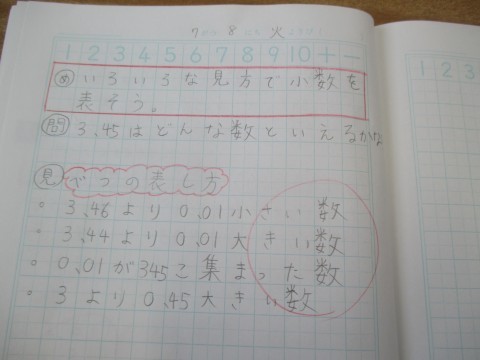 7 8 火
1 2 3 4 5 6 7 8 9 10 + −
め いろいろな見方で小数を
表そう。
問 3.45はどんな数といえるかな
見 べつの表し方
・ 3.46より0.01小さい数
・ 3.44より0.01大きい数
・ 0.01が345こ集まった数
・ 3より0.45大きい数
1 2 3